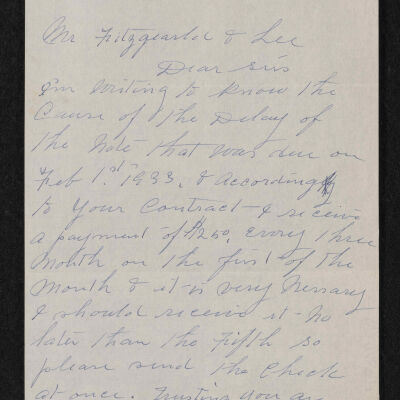 Mr Fitzgearld & Lee
Dear Sirs
I'm writing to know the
Cause of the Delay of
the Note that was due on
Feb 1.st 1933. & according
to your Contract I receive
a payment of $250. Every three
Month on the first of the
Month & it is very Nersary
I should receive it no
later than the Fifth so
please send the Check
at once. Trusting you are